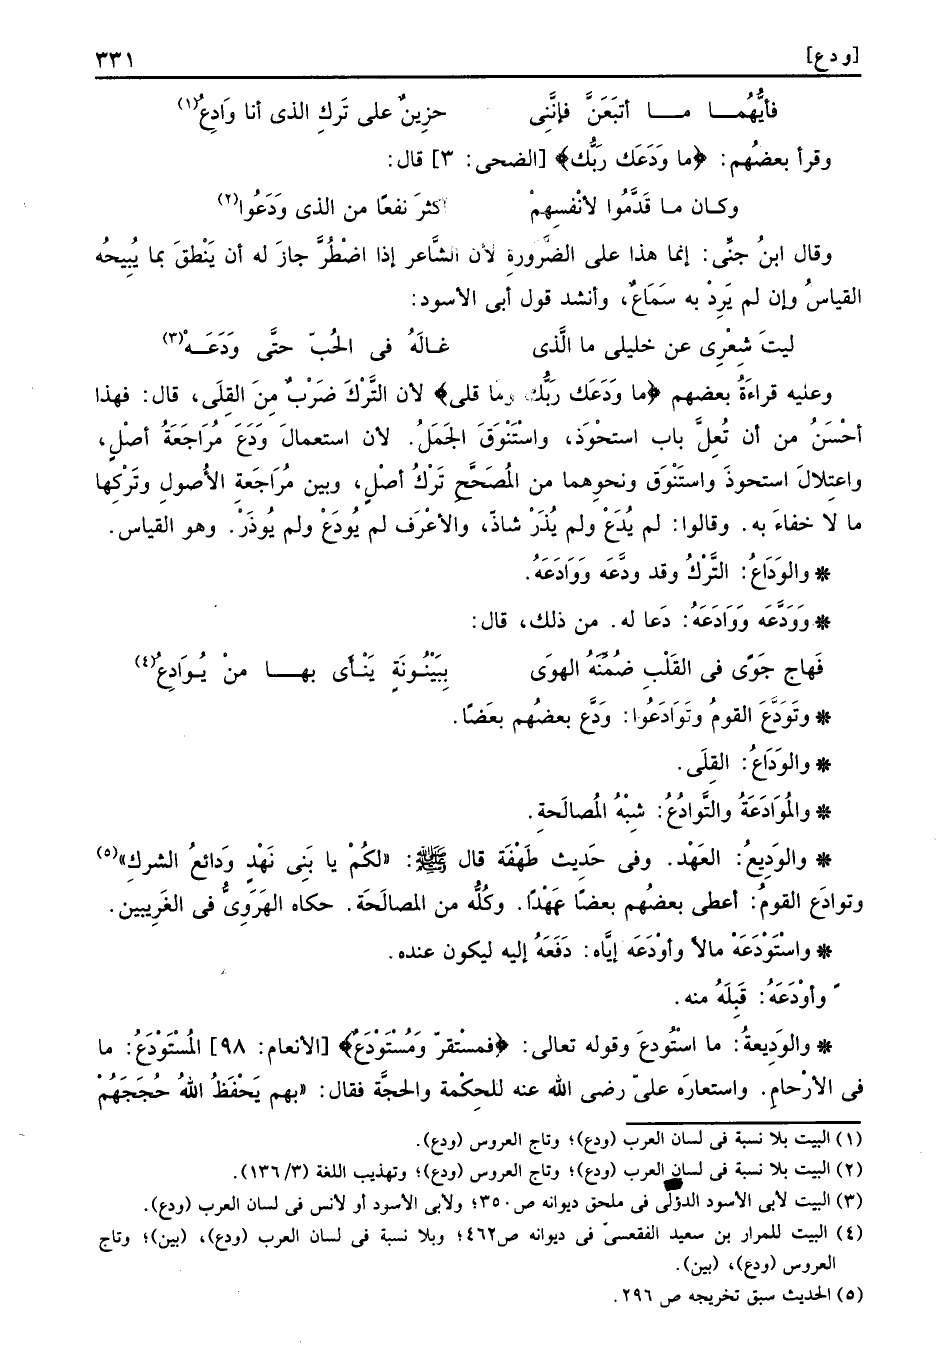 [و د ع] ٣٣١
فأيُّهمــا مــا أتبَعَنَّ فإنَّنِى حزِينٌ على تَركِ الذى أنا وَادِعُ(١)
وقرأ بعضُهم: ﴿ما وَدَعَك رَبُّك﴾ [الضحى: ٣] قال:
وكـان مـا قَدَّمُوا لأنْفسِهمْ أكثرَ نفعًا من الذى ودَعُوا(٢)
وقال ابنُ جنِّى: إنما هذا على الضَّرُورةِ لأن الشَّاعر إذا اضْطُرَّ جازَ له أن يَنْطقَ بما يُبيحهُ
القياسُ وإن لم يَرِدْ به سَمَاعٌ، وأنشد قول أبى الأسود:
ليتَ شِعْرِى عن خليلى ما الَّذى غـالَهُ فى الحُبّ حتَّى ودَعَـهْ(٣)
وعليه قراءَةُ بعضهم ﴿ما وَدَعَك رَبُّك وما قلى﴾ لأن التَّرْكَ ضَرْبٌ مِنَ القِلَى، قال: فهذا
أحْسَنُ من أن تُعلَّ باب استحْوَذ، واسْتَنْوَقَ الجَمَلُ. لأن استعمالَ وَدَعَ مُرَاجَعَةُ أصْلٍ،
واعتِلالَ استحوذَ واستَنْوَق ونحوِهما من المُصَحَّحِ تَرْكُ أصْلٍ، وبين مُرَاجَعةِ الأُصولِ وتَرْكِها
ما لا خفاءَ به. وقالوا: لم يُدَعْ ولم يُذَرْ شاذّ، والأعْرَف لم يُودَعْ ولم يُوذَرْ. وهو القياس.
* والوَدَاعُ: التَّرْكُ وقد ودَّعَه وَوَادَعَهُ.
* وَوَدَّعَه وَوَادَعَهُ: دَعا له. من ذلك، قال:
فَهاج جَوًى فى القَلْبِ ضُمِّنَهُ الهوَى بِبَيْنُونَةٍ يَنْـأى بهــا منْ يُـوَادِعُ(٤)
* وتَودَّعَ القومُ وتَوادَعُوا: ودَّع بعضُهم بعَضًا.
* والوَدَاعُ: القِلَى.
* والمُوَادَعَةُ والتَّوادُعُ: شِبْهُ المُصالَحة.
* والوَدِيعُ: العَهْد. وفى حَديث طَهْفَة قال ﷺ: «لكُمْ يا بَنِى نَهْدٍ وَدائعُ الشرك»(٥)
وتوادَع القومُ: أعطى بعضُهم بعضًا عَهْدًا. وكُلُّه من المصالَحَة. حكاه الهَرَوىُّ فى الغَرِيبين.
* واسْتَوْدَعَهْ مالاً وأوْدَعَه إيَّاه: دَفَعَهُ إليه ليكون عنده.
* وأوْدَعَهُ: قَبِلَهُ منه.
* والوَدِيعةُ: ما استُودعَ وقوله تعالى: ﴿فمستَقرّ ومُستَوْدَعٌ﴾ [الأنعام: ٩٨] المُسْتَوْدَعُ: ما
فى الأرْحامِ. واستعارَه علىّ رضى الله عنه للحِكْمة والحجَّة فقال: «بهم يَحْفَظُ اللهُ حُجَجَهُمْ
(١) البيت بلا نسبة فى لسان العرب (ودع)؛ وتاج العروس (ودع).
(٢) البيت بلا نسبة فى لسان العرب (ودع)؛ وتاج العروس (ودع)؛ وتهذيب اللغة (١٣٦/٣).
(٣) البيت لأبى الأسود الدؤلى فى ملحق ديوانه ص٣٥٠؛ ولأبى الأسود أو لأنس فى لسان العرب (ودع).
(٤) البيت للمرار بن سعيد الفقعسىّ فى ديوانه ص٤٦٢؛ وبلا نسبة فى لسان العرب (ودع)، (بين)؛ وتاج
العروس (ودع)، (بين).
(٥) الحديث سبق تخريجه ص ٢٩٦.